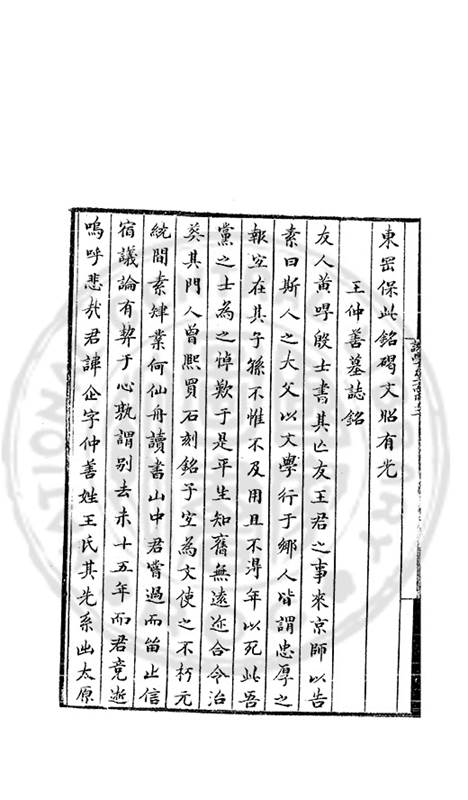 東岡保此銘碣文昭有光
王仲善墓誌銘
友人黃哻殷士書其亾友王君之事來京師以告
素曰斯人之大父以文學行于鄉人皆謂忠厚之
報宜在其子孫不惟不及用且不淂年以死此吾
黨之士為之悼歎于是平生知舊無遠迩合令治
葵其門人曾熈買石刻銘子宜為文使之不朽元
統間素肄業何仙舟讀書山中君嘗過而畱止信
宿議論有契于心孰謂別去未十五年而君竟逝
嗚呼悲哉君諱企字仲善姓王氏其先系出太原